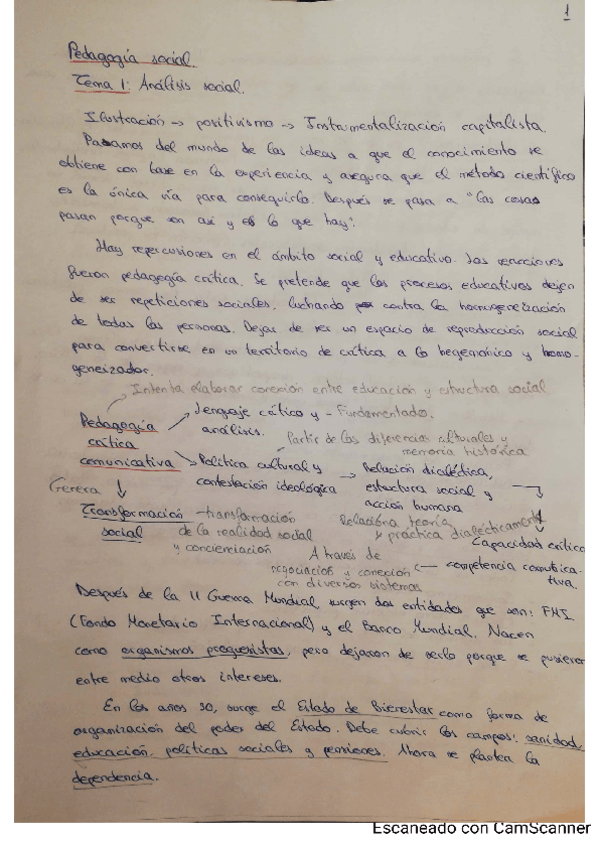 1
Pedagogía social.
Tema 1: Análisis social.
Ilustración → positivismo → Instrumentalización capitalista.
Pasamos del mundo de las ideas a que el conocimiento se
obtiene con base en la experiencia y asegura que el método científico
es la única vía para conseguirlo. Después se pasa a "las cosas
pasan porque son así y es lo que hay".
Hay repercusiones en el ámbito social y educativo. Las reacciones
fueron pedagogía crítica. Se pretende que los procesos educativos dejen
de ser repeticiones sociales, luchando contra la homogeneización
de todas las personas. Dejar de ser un espacio de reproducción social
para convertirse en un territorio de crítica a lo hegemónico y homo-
geneizador.
Intenta elaborar conexión entre educación y estructura social
Pedagogía crítica comunicativa
Lenguaje crítico y - Fundamentados.
análisis.
Partir de las diferencias culturales y
memoria histórica
Política cultural y
contestación ideológica
→ Relación dialéctica,
estructura social y
acción humana
Relaciona teoría
y práctica dialécticamente
Capacidad crítica
← competencia comunica-
tiva.
A través de
negociación y conexión
con diversos sistemas
Genera ↓
Transformación social
- transformación
de la realidad social
y concienciación
Después de la II Guerra Mundial, surgen dos entidades que son: FMI
(Fondo Monetario Internacional) y el Banco Mundial. Nacen
como organismos progresistas, pero dejaron de serlo porque se pusieron
entre medio otros intereses.
En los años 30, surge el Estado de Bienestar como forma de
organización del poder del Estado. Debe cubrir los campos: sanidad,
educación, políticas sociales y pensiones. Ahora se plantea la
dependencia.
Escaneado con CamScanner